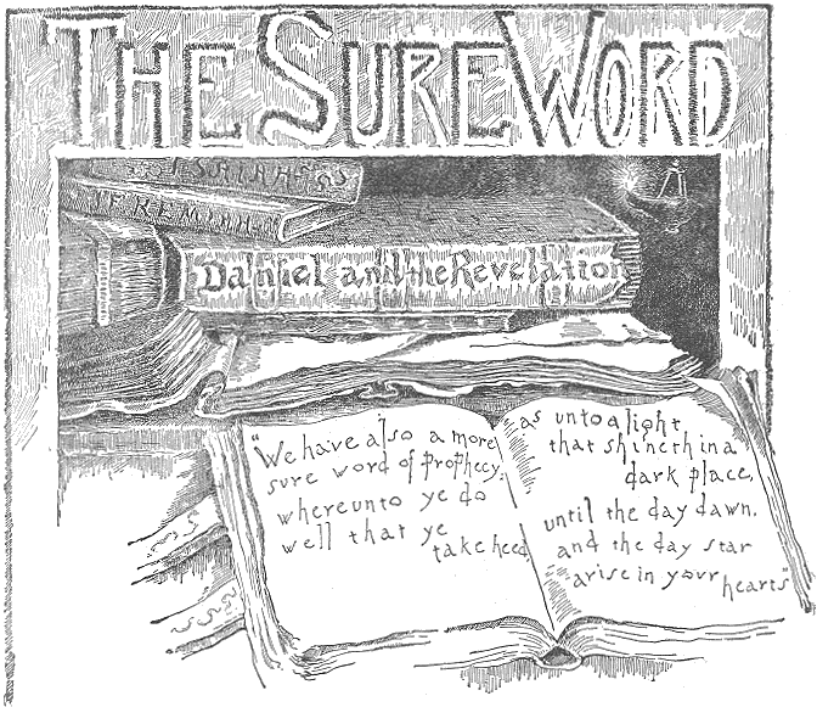 THE SURE WORD
ISAIAH
JEREMIAH
Daniel and the Revelation
"We have also a more
sure word of prophecy,
whereunto ye do
well that ye
take heed,
as unto a light
that shineth in a
dark place,
until the day dawn,
and the day star
arise in your
hearts"